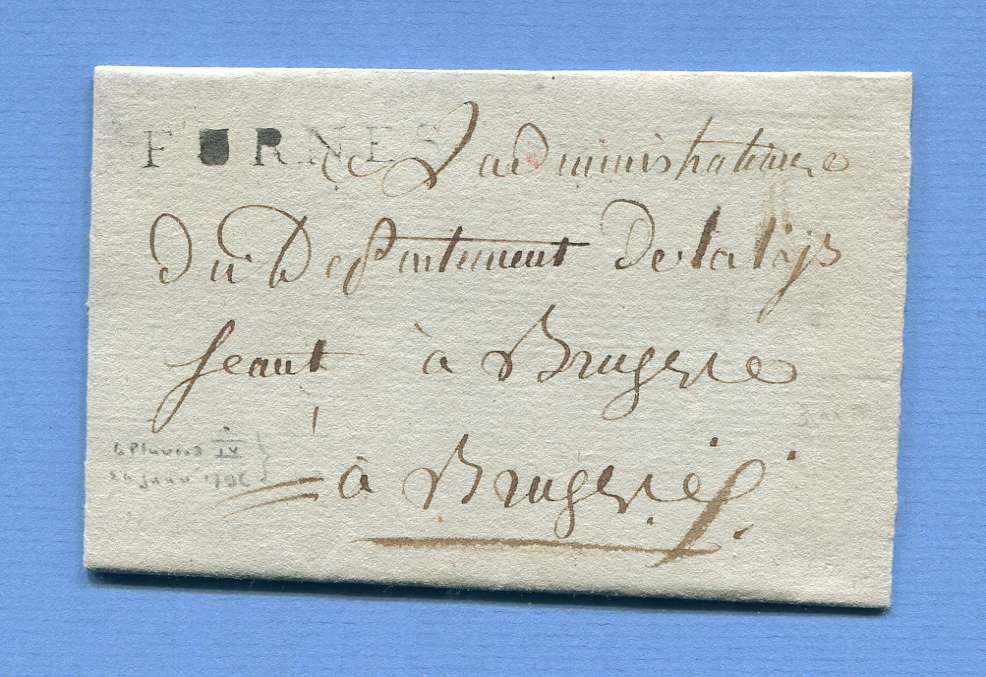 FURNES
administration
du Departement de la lys
seant à Brugese
à Brugeses
6 Pluviose IV